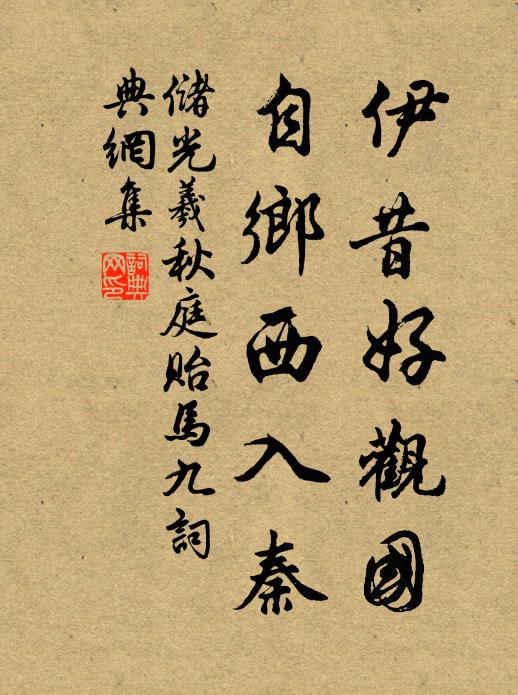 伊昔好觀國
自鄉西入秦
儲光羲秋庭貽馬九詞
典網集
詞典網印